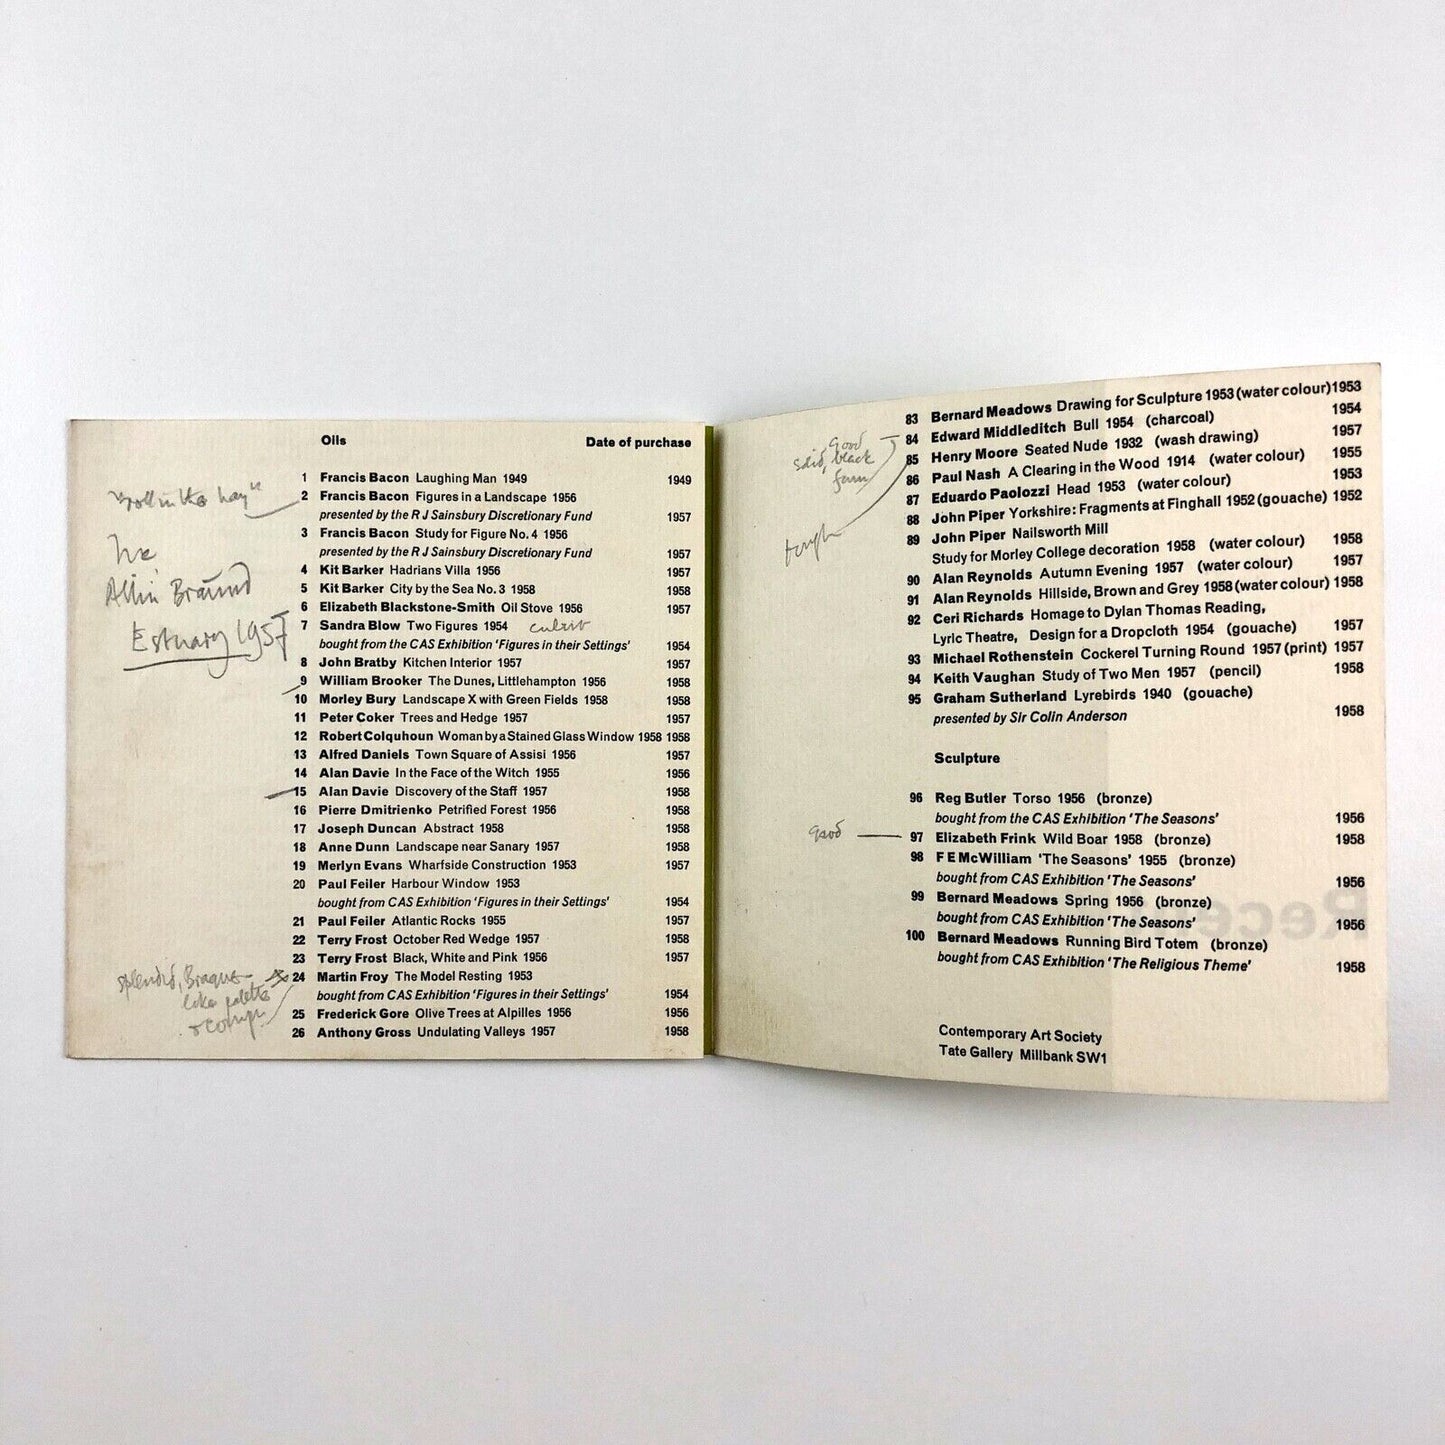 Oils Date of purchase
1 Francis Bacon Laughing Man 1949 1949
2 Francis Bacon Figures in a Landscape 1956
presented by the R J Sainsbury Discretionary Fund 1957
3 Francis Bacon Study for Figure No. 4 1956
presented by the R J Sainsbury Discretionary Fund 1957
4 Kit Barker Hadrians Villa 1956 1957
5 Kit Barker City by the Sea No. 3 1958 1958
6 Elizabeth Blackstone-Smith Oil Stove 1956 1957
7 Sandra Blow Two Figures 1954 cubist
bought from the CAS Exhibition 'Figures in their Settings' 1954
8 John Bratby Kitchen Interior 1957 1957
9 William Brooker The Dunes, Littlehampton 1956 1958
10 Morley Bury Landscape X with Green Fields 1958 1958
11 Peter Coker Trees and Hedge 1957 1957
12 Robert Colquhoun Woman by a Stained Glass Window 1958 1958
13 Alfred Daniels Town Square of Assisi 1956 1957
14 Alan Davie In the Face of the Witch 1955 1956
15 Alan Davie Discovery of the Staff 1957 1958
16 Pierre Dmitrienko Petrified Forest 1956 1958
17 Joseph Duncan Abstract 1958 1958
18 Anne Dunn Landscape near Sanary 1957 1958
19 Merlyn Evans Wharfside Construction 1953 1957
20 Paul Feiler Harbour Window 1953
bought from CAS Exhibition 'Figures in their Settings' 1954
21 Paul Feiler Atlantic Rocks 1955 1957
22 Terry Frost October Red Wedge 1957 1958
23 Terry Frost Black, White and Pink 1956 1957
24 Martin Froy The Model Resting 1953
bought from CAS Exhibition 'Figures in their Settings' 1954
25 Frederick Gore Olive Trees at Alpilles 1956 1956
26 Anthony Gross Undulating Valleys 1957 1958
"roll in the hay"
Allin Braund
Estuary 1957
splendid, Braque-
like palette
83 Bernard Meadows Drawing for Sculpture 1953 (water colour) 1953
84 Edward Middleditch Bull 1954 (charcoal) 1954
85 Henry Moore Seated Nude 1932 (wash drawing) 1957
86 Paul Nash A Clearing in the Wood 1914 (water colour) 1955
87 Eduardo Paolozzi Head 1953 (water colour) 1953
88 John Piper Yorkshire: Fragments at Finghall 1952 (gouache) 1952
89 John Piper Nailsworth Mill
Study for Morley College decoration 1958 (water colour) 1958
90 Alan Reynolds Autumn Evening 1957 (water colour) 1957
91 Alan Reynolds Hillside, Brown and Grey 1958 (water colour) 1958
92 Ceri Richards Homage to Dylan Thomas Reading,
Lyric Theatre, Design for a Dropcloth 1954 (gouache) 1957
93 Michael Rothenstein Cockerel Turning Round 1957 (print) 1957
94 Keith Vaughan Study of Two Men 1957 (pencil) 1958
95 Graham Sutherland Lyrebirds 1940 (gouache)
presented by Sir Colin Anderson 1958
Sculpture
96 Reg Butler Torso 1956 (bronze)
bought from the CAS Exhibition 'The Seasons' 1956
97 Elizabeth Frink Wild Boar 1958 (bronze) 1958
98 F E McWilliam 'The Seasons' 1955 (bronze)
bought from CAS Exhibition 'The Seasons' 1956
99 Bernard Meadows Spring 1956 (bronze)
bought from CAS Exhibition 'The Seasons' 1956
100 Bernard Meadows Running Bird Totem (bronze)
bought from CAS Exhibition 'The Religious Theme' 1958
Contemporary Art Society
Tate Gallery Millbank SW1
good
solid, black
form
tough
good
Rece